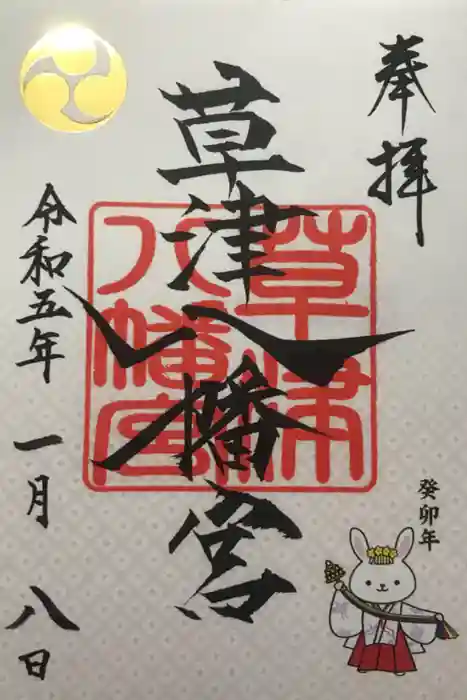 奉拝
草津八幡宮
草津
八幡宮
令和五年一月八日
癸卯年